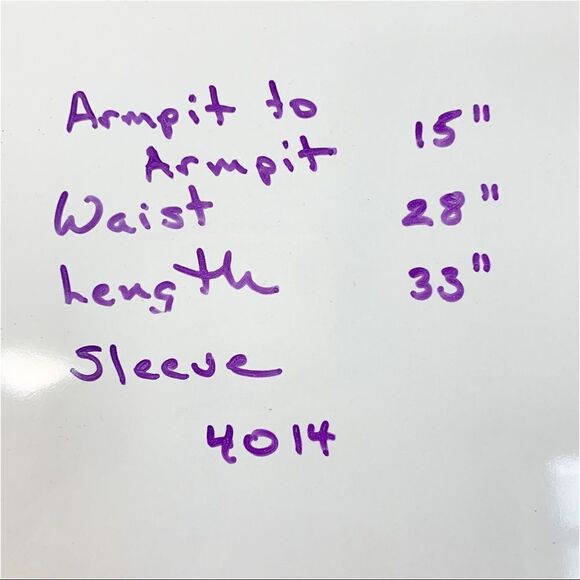 Armpit to
Armpit 15"
Waist 28"
Length 33"
Sleeve
4014